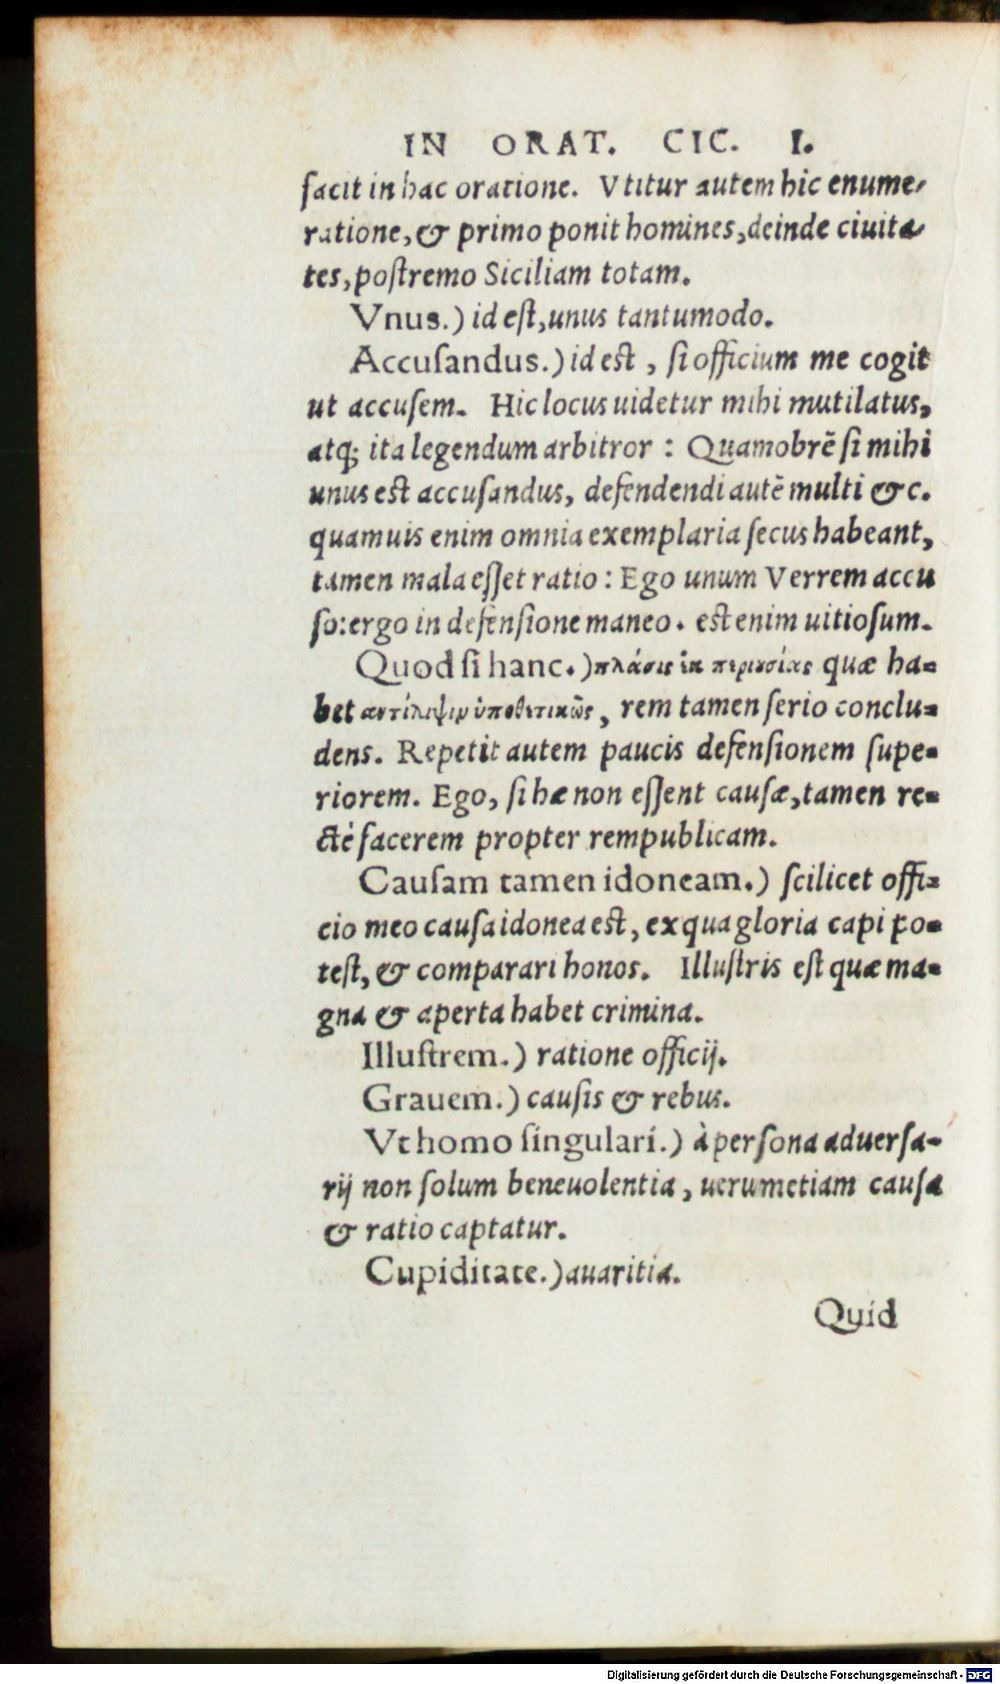 IN ORAT. CIC. I.
facit in hac oratione. Vtitur autem hic enume-
ratione, & primo ponit homines, deinde ciuita-
tes, postremo Siciliam totam.
Vnus.) id est, unus tantumodo.
Accusandus.) id est, si officium me cogit
ut accusem. Hic locus uidetur mihi mutilatus,
atq; ita legendum arbitror : Quamobrē si mihi
unus est accusandus, defendendi autē multi &c.
quamuis enim omnia exemplaria secus habeant,
tamen mala esset ratio : Ego unum Verrem accu
so: ergo in defensione maneo. est enim uitiosum.
Quod si hanc.) πλάσις ἐκ περιουσίας quæ ha-
bet αντίληψιν ὑποθετικῶς, rem tamen serio conclu-
dens. Repetit autem paucis defensionem supe-
riorem. Ego, si hæ non essent causæ, tamen re-
ctè facerem propter rempublicam.
Causam tamen idoneam.) scilicet offi-
cio meo causa idonea est, ex qua gloria capi po-
test, & comparari honos. Illustris est quæ ma-
gna & aperta habet crimina.
Illustrem.) ratione officij.
Grauem.) causis & rebus.
Vt homo singulari.) à persona aduersa-
rij non solum beneuolentia, uerumetiam causa
& ratio captatur.
Cupiditate.) auaritia.
Quid
Digitalisierung gefördert durch die Deutsche Forschungsgemeinschaft - DFG